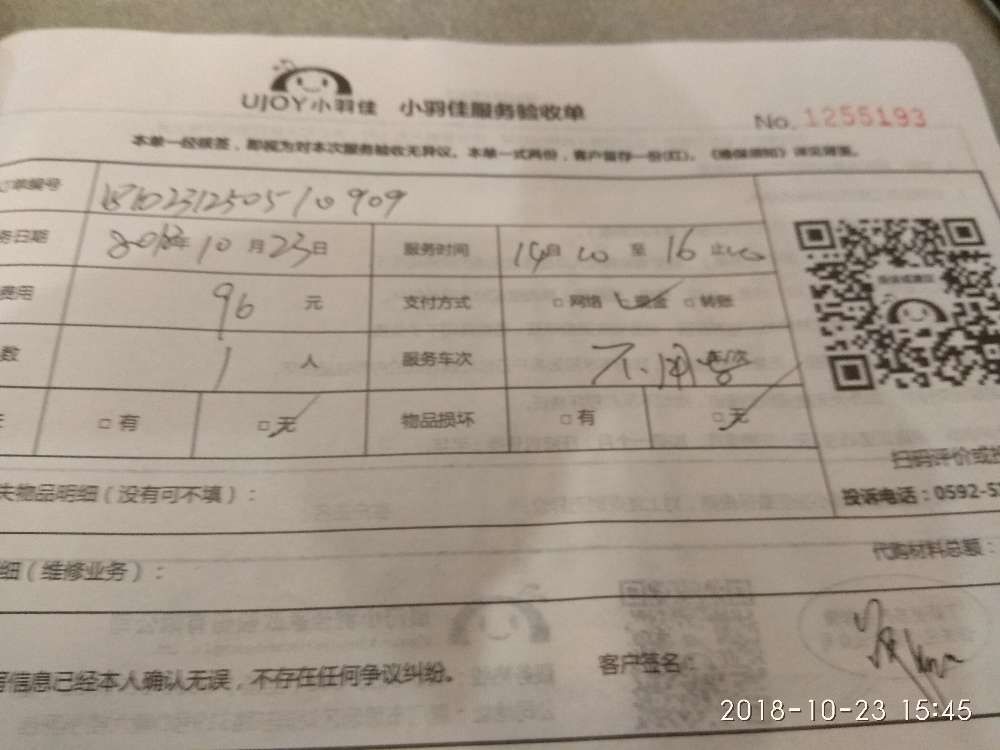 UJOY小羽佳 小羽佳服务验收单
No. 1255193
本单一经核签，即视为对本次服务验收无异议。本单一式两份，客户留存一份(红)。《维保须知》详见背面。
订单编号
务日期 2018年10月23日 服务时间 14 00 至 16 止 00
费用 96 元 支付方式 □网络 现金 □转账
数 1 人 服务车次
□有 □无 物品损坏 □有 □无
扫码评价或投
失物品明细（没有可不填）：
投诉电话：0592-57
代购材料总额：
细（维修业务）：
客户签名：
信息已经本人确认无误，不存在任何争议纠纷。
2018-10-23 15:45